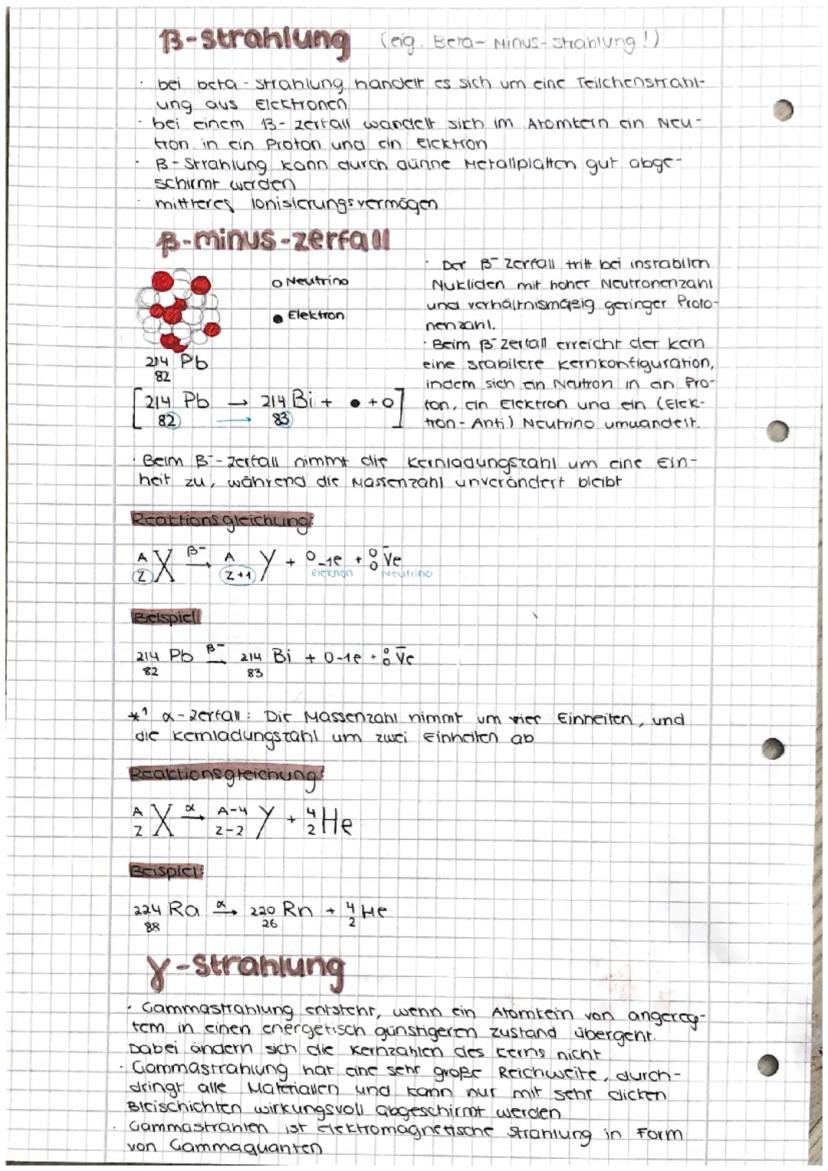 β-strahlung (eig. Beta-Minus-strahlung!)
· bei beta-strahlung handelt es sich um eine Teilchenstrahl-
ung aus Elektronen
· bei einem β-zerfall wandelt sich im Atomkern ein Neu-
tron in ein Proton und ein elektron
· β-Strahlung kann durch dünne Metallplatten gut abge-
schirmt werden
· mittleres Ionisierungsvermögen
β-minus-zerfall
○ Neutrino
● Elektron
214 Pb
82
[214 Pb → 214 Bi + ● + ○]
82 → 83
· Der β⁻ Zerfall tritt bei instabilen
Nukliden mit hoher Neutronenzahl
und verhältnismäßig geringer Proto-
nenzahl.
· Beim β⁻ Zerfall erreicht der kern
eine stabilere kernkonfiguration,
indem sich ein Neutron in ein Pro-
ton, ein Elektron und ein (Elek-
tron-Anti) Neutrino umwandelt.
· Beim β⁻-zerfall nimmt die kernladungszahl um eine Ein-
heit zu, während die Massenzahl unverändert bleibt
Reaktionsgleichung:
A X β⁻→ A Y + 0 -1e + 0 ν̅e
Z Z+1 Elektron 0 Neutrino
Beispiel:
214 Pb β⁻→ 214 Bi + 0-1e + 0 ν̅e
82 83 0
*¹ α-zerfall: Die Massenzahl nimmt um vier Einheiten, und
die kernladungszahl um zwei einheiten ab
Reaktionsgleichung:
A X α→ A-4 Y + 4 He
Z Z-2 2
Beispiel:
224 Ra α→ 220 Rn + 4 He
88 26 2
γ-strahlung
· Gammastrahlung entsteht, wenn ein Atomkern von angereg-
tem in einen energetisch günstigeren zustand übergeht.
Dabei ändern sich die kernzahlen des kerns nicht
· Gammastrahlung hat eine sehr große Reichweite, durch-
dringt alle Materialien und kann nur mit sehr dicken
Bleischichten wirkungsvoll abgeschirmt werden
· Gammastrahlen ist elektromagnetische strahlung in Form
von Gammaquanten